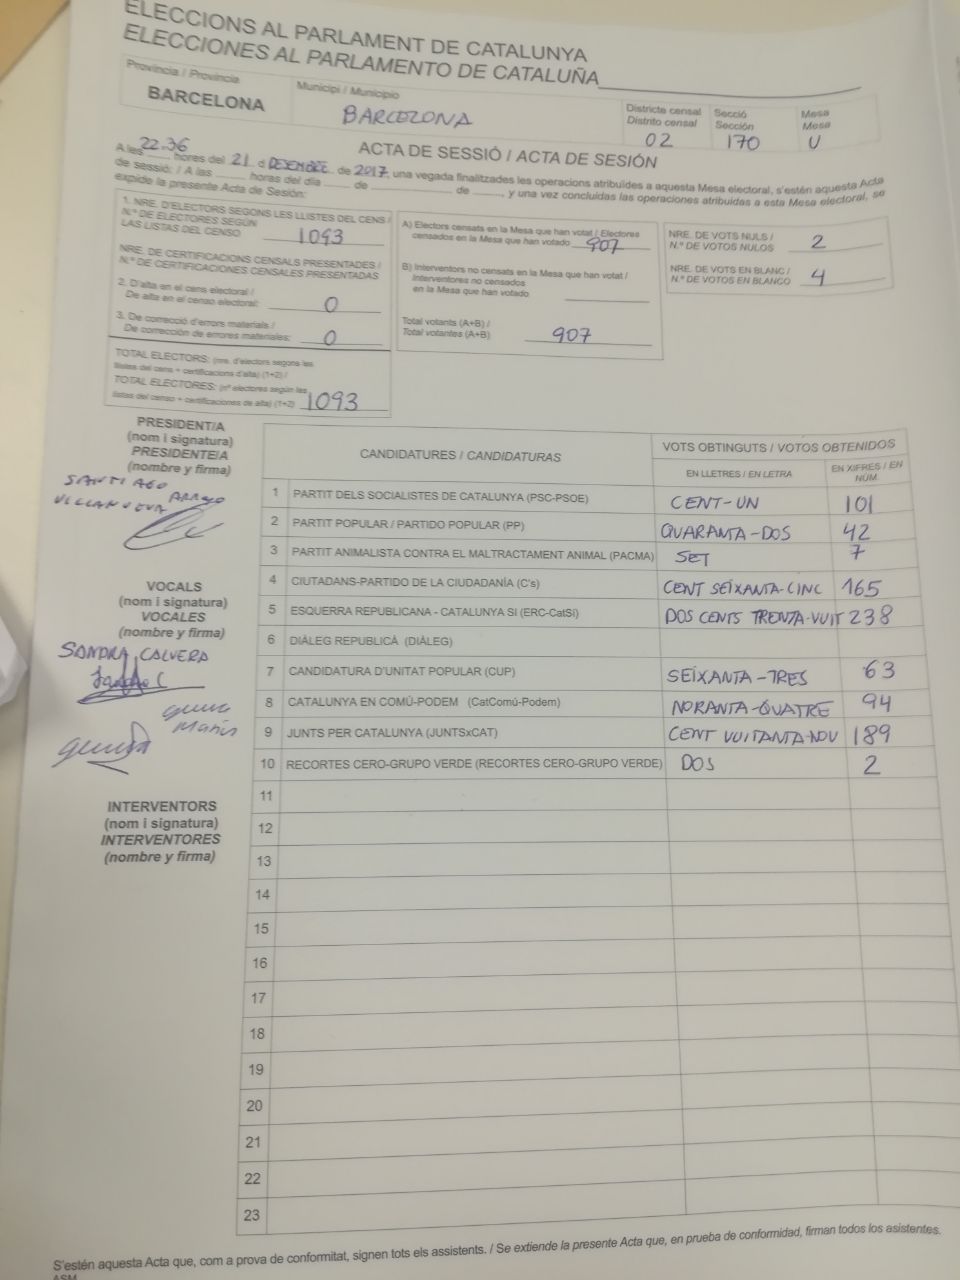 ELECCIONS AL PARLAMENT DE CATALUNYA
ELECCIONES AL PARLAMENTO DE CATALUÑA
Província / Provincia
BARCELONA
Municipi / Municipio
BARCELONA
Districte censal
Distrito censal
02
Secció
Sección
170
Mesa
Mesa
U
ACTA DE SESSIÓ / ACTA DE SESIÓN
A les 22.36 hores del 21 d DESEMBRE de 2017, una vegada finalitzades les operacions atribuïdes a aquesta Mesa electoral, s'estén aquesta Acta
de sessió: / A las ____ horas del día ____ de ____ de ____, y una vez concluidas las operaciones atribuidas a esta Mesa electoral, se
expide la presente Acta de Sesión:
1. NRE. D'ELECTORS SEGONS LES LLISTES DEL CENS /
N.º DE ELECTORES SEGÚN
LAS LISTAS DEL CENSO 1093
NRE. DE CERTIFICACIONS CENSALS PRESENTADES /
N.º DE CERTIFICACIONES CENSALES PRESENTADAS
2. D'alta en el cens electoral /
De alta en el censo electoral: 0
3. De correcció d'errors materials /
De corrección de errores materiales: 0
TOTAL ELECTORS: (nre. d'electors segons les
llistes del cens + certificacions d'alta) (1+2) /
TOTAL ELECTORES: (nº electores según las
listas del censo + certificaciones de alta) (1+2) 1093
A) Electors censats en la Mesa que han votat / Electores
censados en la Mesa que han votado 907
B) Interventors no censats en la Mesa que han votat /
Interventores no censados
en la Mesa que han votado
Total votants (A+B) /
Total votantes (A+B) 907
NRE. DE VOTS NULS /
N.º DE VOTOS NULOS 2
NRE. DE VOTS EN BLANC /
N.º DE VOTOS EN BLANCO 4
PRESIDENT/A
(nom i signatura)
PRESIDENTE/A
(nombre y firma)
SANTIAGO
VILLANUEVA ARROYO
VOCALS
(nom i signatura)
VOCALES
(nombre y firma)
SANDRA CALVERA
INTERVENTORS
(nom i signatura)
INTERVENTORES
(nombre y firma)
CANDIDATURES / CANDIDATURAS
VOTS OBTINGUTS / VOTOS OBTENIDOS
EN LLETRES / EN LETRA
EN XIFRES / EN
NÚM.
1 PARTIT DELS SOCIALISTES DE CATALUNYA (PSC-PSOE) CENT-UN 101
2 PARTIT POPULAR / PARTIDO POPULAR (PP) QUARANTA-DOS 42
3 PARTIT ANIMALISTA CONTRA EL MALTRACTAMENT ANIMAL (PACMA) SET 7
4 CIUTADANS-PARTIDO DE LA CIUDADANÍA (C's) CENT SEIXANTA-CINC 165
5 ESQUERRA REPUBLICANA - CATALUNYA SI (ERC-CatSí) DOS CENTS TRENTA-VUIT 238
6 DIÀLEG REPUBLICÀ (DIÀLEG)
7 CANDIDATURA D'UNITAT POPULAR (CUP) SEIXANTA-TRES 63
8 CATALUNYA EN COMÚ-PODEM (CatComú-Podem) NORANTA-QUATRE 94
9 JUNTS PER CATALUNYA (JUNTSxCAT) CENT VUITANTA-NOU 189
10 RECORTES CERO-GRUPO VERDE (RECORTES CERO-GRUPO VERDE) DOS 2
11
12
13
14
15
16
17
18
19
20
21
22
23
S'estén aquesta Acta que, com a prova de conformitat, signen tots els assistents. / Se extiende la presente Acta que, en prueba de conformidad, firman todos los asistentes.
ASM